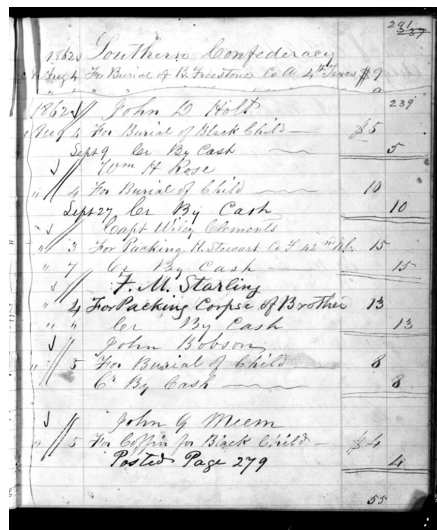 241
237
1862 Southern Confederacy
Aug 4 For Burial of B. Freestone Co A. 4th Texas $9
1862 John D Holt 239
Aug 4 For Burial of Black Child $5
Sept 9 Cr By Cash 5
Wm H Rose
" 4 For Burial of Child 10
Sept 27 Cr By Cash 10
Capt Wiley Clemonts
" 3 For Packing H. Stewart Co F 42nd 15
" 7 Cr By Cash 15
F. M. Starling
4 For Packing Corpse of Brother 13
" " Cr By Cash 13
John Bobson
" 5 For Burial of Child 8
Cr By Cash 8
John G Meem
" 5 For Coffin for Black Child $4
Posted Page 279 4
55